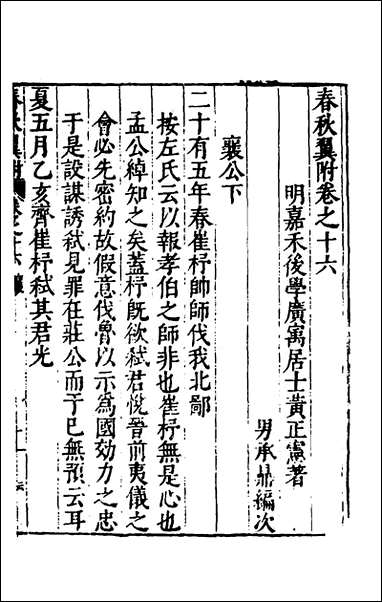 春秋翼附卷之十六
明嘉禾後學廣寓居士黃正憲著
男承鼎編次
襄公下
二十有五年春崔杼帥師伐我北鄙
按左氏云以報孝伯之師非也崔杼無是心也
孟公綽知之矣蓋杼旣欲弑君悅晉前夷儀之
會必先密約故假意伐魯以示為國効力之忠
于是設謀誘弑見罪在莊公而于已無預云耳
夏五月乙亥齊崔杼弑其君光